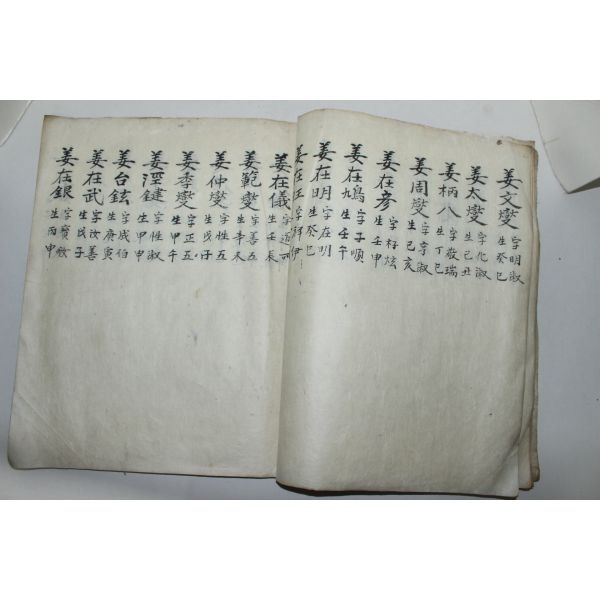 姜文燮 字明淑 生癸巳
姜太燮 字化淑 生己丑
姜柄八 字敬瑞 生丁巳
姜周燮 字字淑 生己亥
姜在彦 字 炫 生壬申
姜在鳩 字子順 生壬午
姜在明 字在明 生癸巳
姜在 字 伊
姜在儀 字 生壬辰
姜範燮 字善五 生辛未
姜仲燮 字性五 生戊子
姜季燮 字正五 生甲午
姜澄鍵 字性淑 生甲申
姜台鉉 字成伯 生庚寅
姜在武 字汝善 生戊子
姜在銀 字寶 生丙申